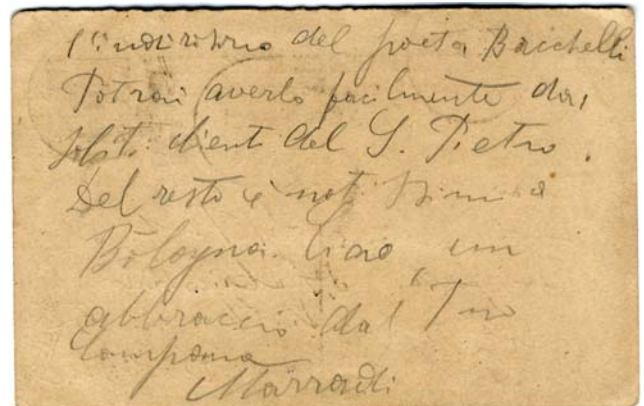 l'indirizzo del poeta Bacchelli
Potrai averlo facilmente dai
soliti clienti del S. Pietro.
Del resto è notissimo a
Bologna. Ciao, un
abbraccio dal Tuo
Campana
Marradi